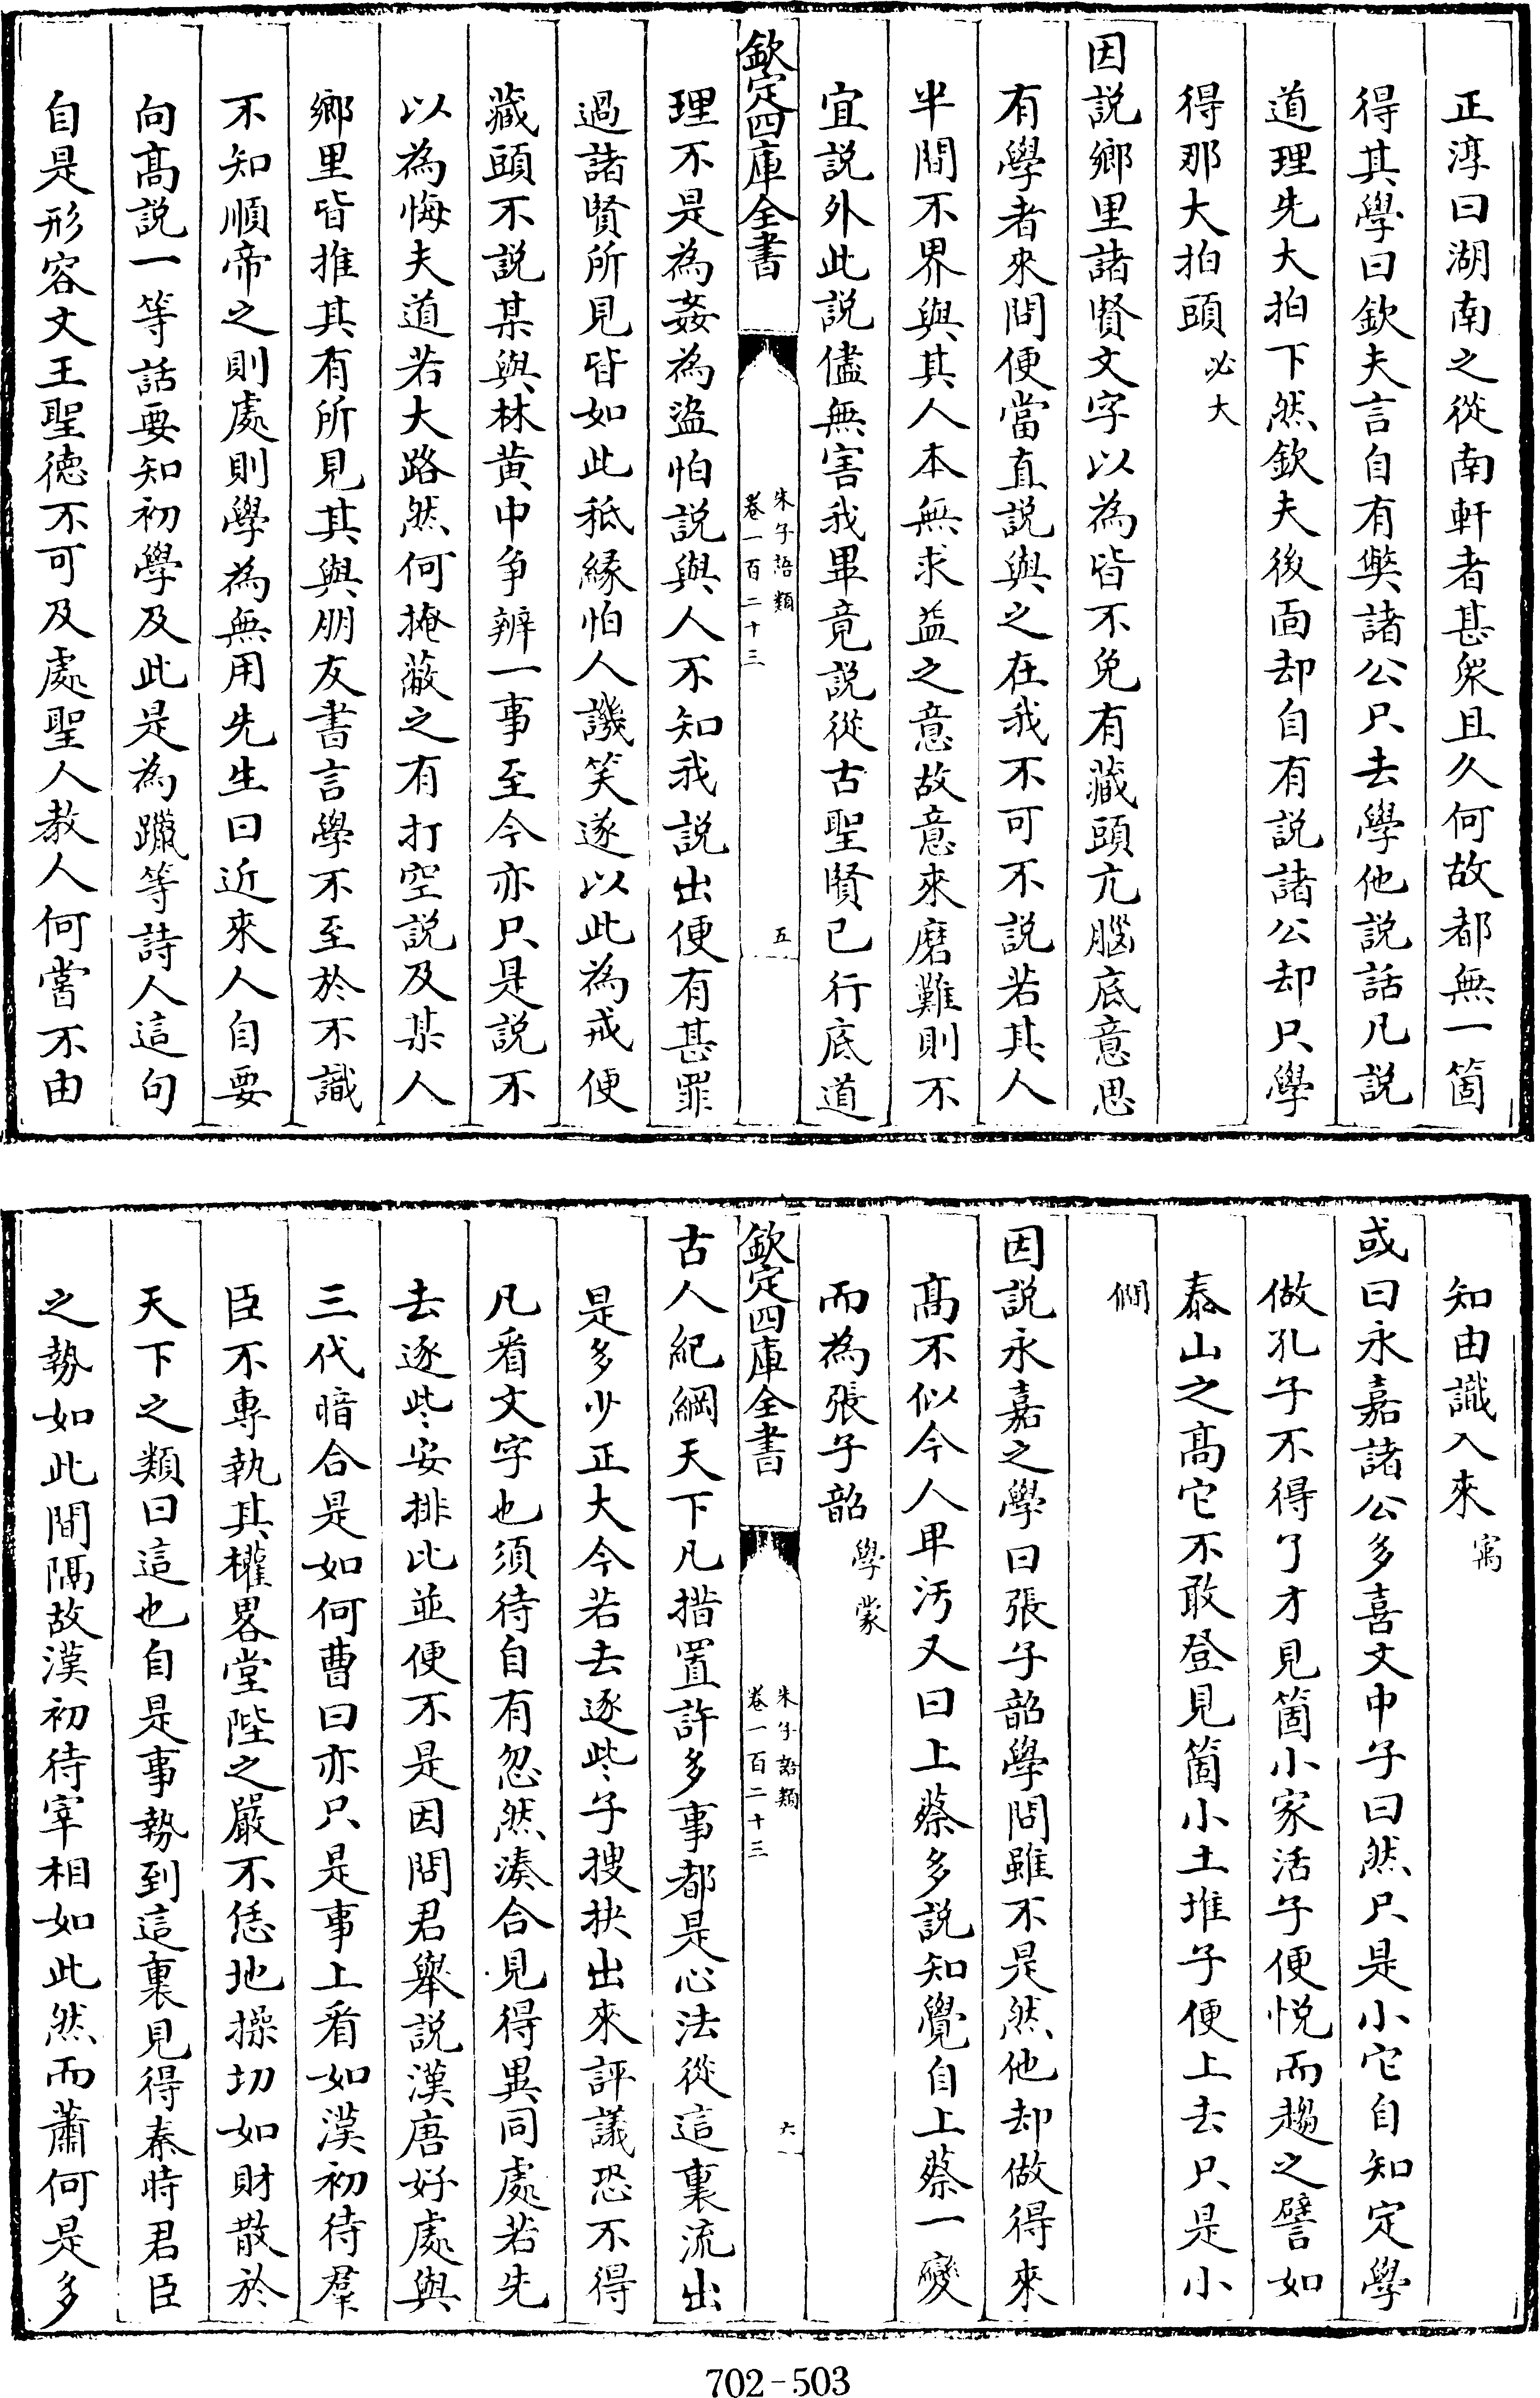 正淳曰湖南之從南軒者甚衆且久何故都無一箇
得其學曰欽夫言自有獘諸公只去學他說話凡說
道理先大拍下然欽夫後面却自有說諸公却只學
得那大拍頭必大
因說鄉里諸賢文字以為皆不免有藏頭亢腦底意思
有學者來問便當直說與之在我不可不說若其人
半間不界與其人本無求益之意故意來磨難則不
宜說外此說儘無害我畢竟說從古聖賢已行底道
欽定四庫全書
朱子語類
卷一百二十三
五
理不是為姦為盜怕說與人不知我說出便有甚罪
過諸賢所見皆如此秪緣怕人譏笑遂以此為戒便
藏頭不說某與林黄中争辨一事至今亦只是說不
以為悔夫道若大路然何掩蔽之有打空說及某人
鄉里皆推其有所見其與朋友書言學不至於不識
不知順帝之則處則學為無用先生曰近來人自要
向髙說一等話要知初學及此是為躐等詩人這句
自是形容文王聖徳不可及處聖人教人何嘗不由
知由識入來㝢
或曰永嘉諸公多喜文中子曰然只是小它自知定學
做孔子不得了才見箇小家活子便悅而趨之譬如
泰山之髙它不敢登見箇小土堆子便上去只是小
僩
因說永嘉之學曰張子韶學問雖不是然他却做得來
髙不似今人卑汚又曰上蔡多說知覺自上蔡一變
而為張子韶學蒙
欽定四庫全書
朱子語類
卷一百二十三
六
古人紀綱天下凡措置許多事都是心法從這裏流出
是多少正大今若去逐些子搜抉出來評議恐不得
凡看文字也須待自有忽然湊合見得異同處若先
去逐些安排比並便不是因問君舉說漢唐好處與
三代暗合是如何曹曰亦只是事上看如漢初待羣
臣不專執其權畧堂陛之嚴不恁地操切如財散於
天下之類曰這也自是事勢到這裏見得秦時君臣
之勢如此間隔故漢初待宰相如此然而蕭何是多
702-503